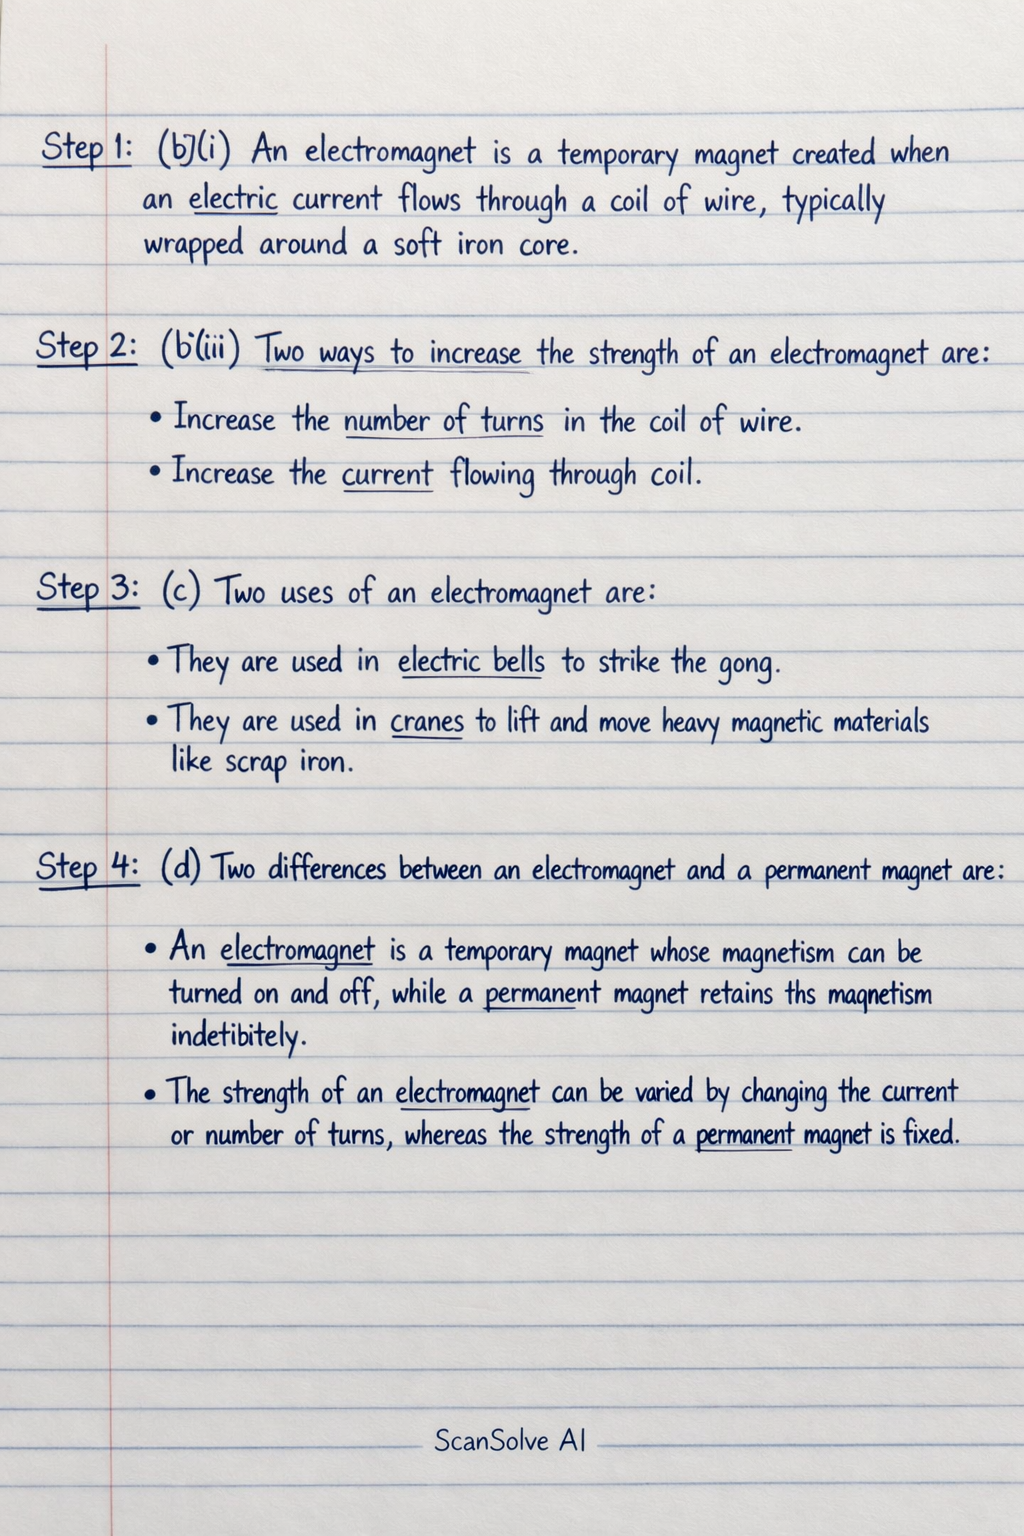 Step 1: (b)(i) An electromagnet is a temporary magnet created when
an electric current flows through a coil of wire, typically
wrapped around a soft iron core.
Step 2: (b(iii) Two ways to increase the strength of an electromagnet are:
• Increase the number of turns in the coil of wire.
• Increase the current flowing through coil.
Step 3: (c) Two uses of an electromagnet are:
• They are used in electric bells to strike the gong.
• They are used in cranes to lift and move heavy magnetic materials
like scrap iron.
Step 4: (d) Two differences between an electromagnet and a permanent magnet are:
• An electromagnet is a temporary magnet whose magnetism can be
turned on and off, while a permanent magnet retains ths maqnetism
indetibitely.
• The strength of an electromagnet can be varied by changing the current
or number of turns, whereas the strength of a permanent magnet is fixed.
ScanSolve AI